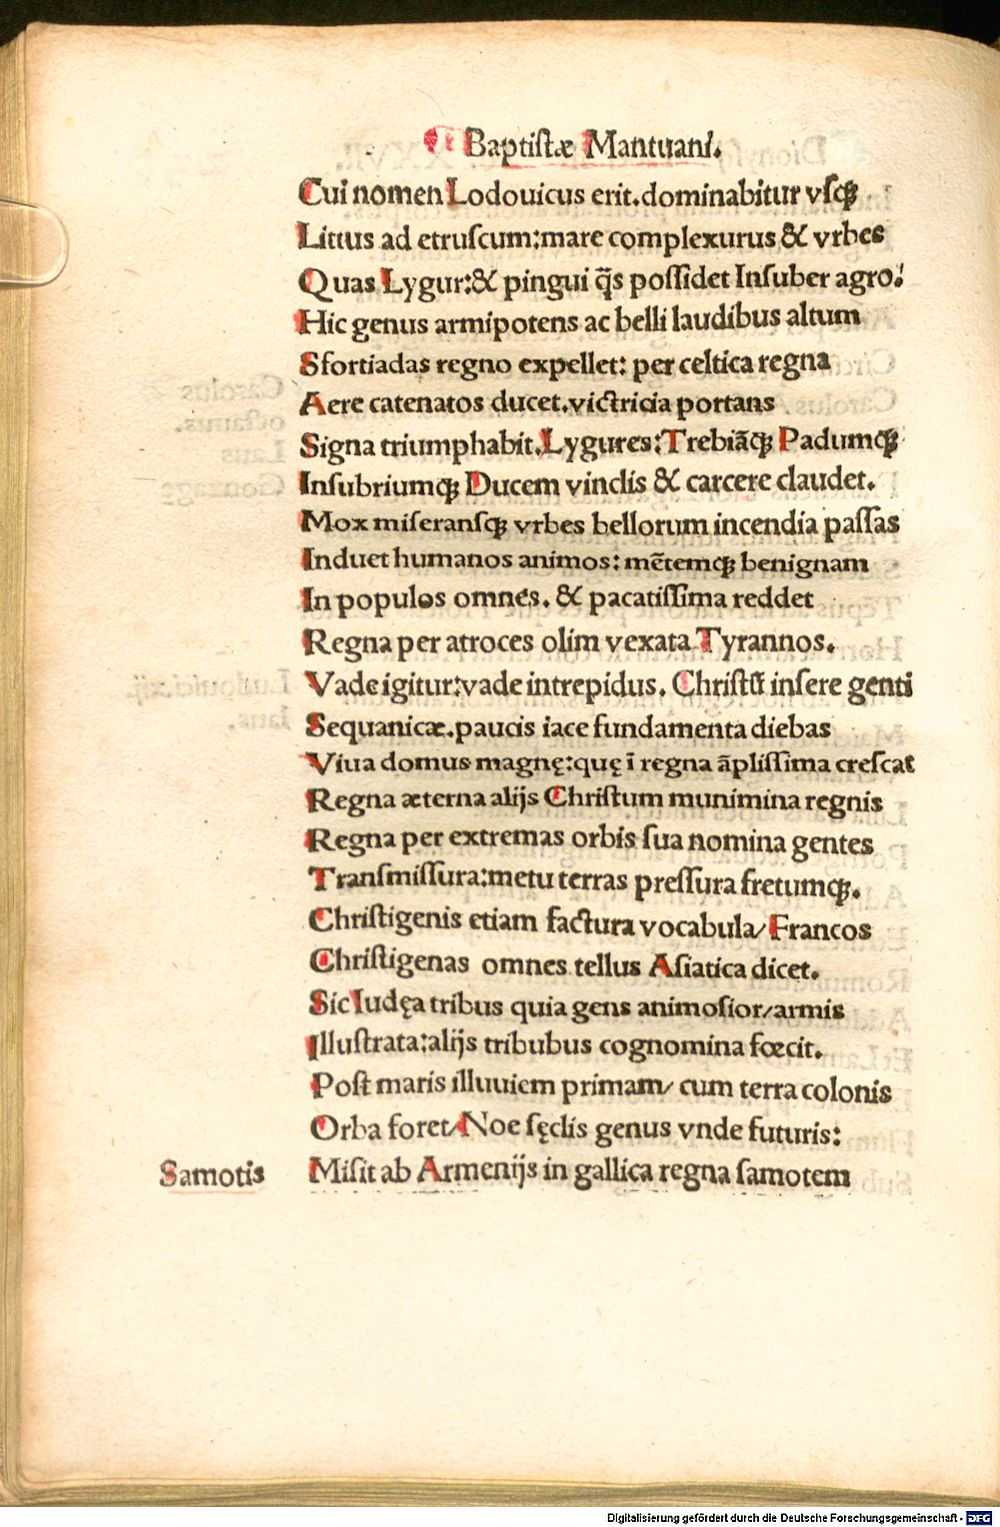 Baptistæ Mantuani.
Cui nomen Lodouicus erit.dominabitur vſqꝫ
Littus ad etruſcum:mare complexurus & vrbes
Quas Lygur:& pingui q̄s poſſidet Inſuber agro.
Hic genus armipotens ac belli laudibus altum
Sfortiadas regno expellet: per celtica regna
Aere catenatos ducet.victricia portans
Signa triumphabit.Lygures:Trebiāqꝫ Padumqꝫ
Inſubriumqꝫ Ducem vinclis & carcere claudet.
Mox miſeranſqꝫ vrbes bellorum incendia paſſas
Induet humanos animos: mētemqꝫ benignam
In populos omnes. & pacatiſſima reddet
Regna per atroces olim vexata Tyrannos.
Vade igitur:vade intrepidus. Chriſtū inſere genti
Sequanicæ.paucis iace fundamenta diebas
Viua domus magnę:quę ī regna āpliſſima creſcat
Regna æterna alijs Chriſtum munimina regnis
Regna per extremas orbis ſua nomina gentes
Tranſmiſſura:metu terras preſſura fretumqꝫ.
Chriſtigenis etiam factura vocabula/ Francos
Chriſtigenas omnes tellus Aſiatica dicet.
Sic Iudęa tribus quia gens animoſior/armis
Illuſtrata:alijs tribubus cognomina fœcit.
Poſt maris illuuiem primam/ cum terra colonis
Orba foret/Noe ſęclis genus vnde futuris:
Samotis Miſit ab Armenijs in gallica regna ſamotem
Digitalisierung gefördert durch die Deutsche Forschungsgemeinschaft - DFG